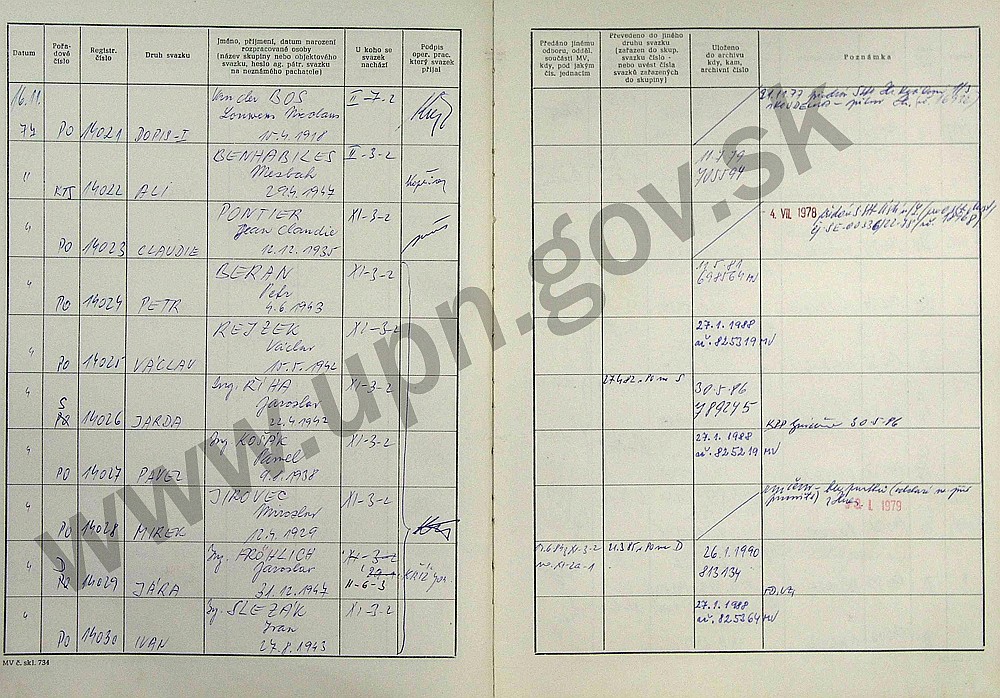 Datum
Pořa-
dové
číslo
Registr.
číslo
Druh svazku
Jméno, příjmení, datum narození
rozpracované osoby
(název skupiny nebo objektového
svazku, heslo ag. pátr. svazku
na neznámého pachatele)
U koho se
svazek
nachází
Podpis
oper. prac.
který svazek
přijal
Předáno jinému
odboru, odděl.
součásti MV,
kdy, pod jakým
čís. jednacím
Převedeno do jiného
druhu svazku
(zařazen do skup.
svazku číslo -
nebo uvést čísla
svazků zařazených
do skupiny)
Uloženo
do archivu
kdy, kam,
archivní číslo
Poznámka
16.11.
77 PO 14021 DOPIS-I
Van der BOS
15.4.1918
II-7-2
" 14022 ALI
BENHABILES
Mesbah
29.4.1947
II-3-2
11.7.79
705594
" PO 14023 CLAUDIE
PONTIER
Jean Claudie
12.12.1935
XI-3-2
4. VII. 1978
" PO 14024 PETR
BERAN
Petr
4.6.1943
XI-3-2
11.5.81
698564 MV
" PO 14025 VÁCLAV
REJZEK
Václav
15.5.1942
XI-3-2
27.1.1988
ař.825319 MV
" S
14026 JARDA
Ing. ŘÍHA
Jaroslav
22.4.1942
XI-3-2
30.5.86
789245
30.5.86
" PO 14027 PAVEL
Ing. KOSÁK
Pavel
9.8.1938
XI-3-2
27.1.1988
ař.825219 MV
" PO 14028 MIREK
JIROVEC
Miroslav
12.4.1929
XI-3-2
I. 1979
" D
14029 JÁRA
Ing. FRÖHLICH
Jaroslav
31.12.1947
XI-3-2
II-6-3
KŘÍŽ
26.1.1990
813134
" PO 14030 IVAN
Ing. SLEZÁK
Ivan
27.8.1943
XI-3-2
27.1.1988
ař.825264 MV
MV č. skl. 734
www.upn.gov.sk